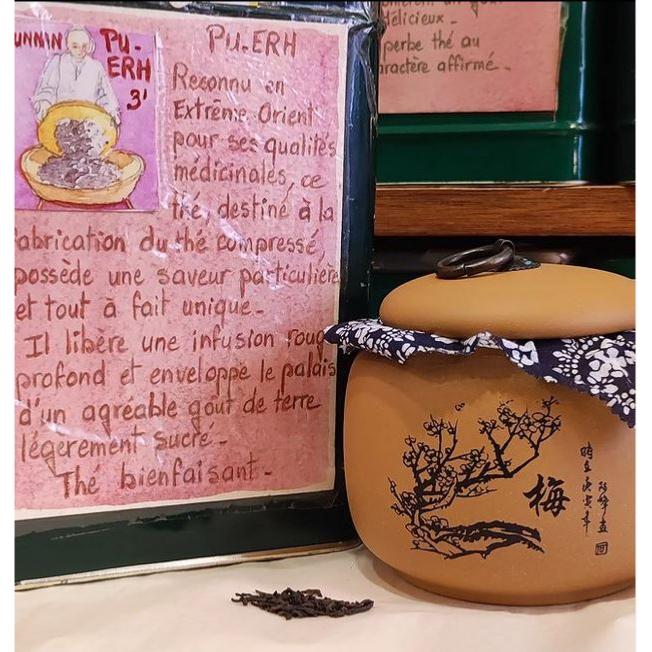 UNNAN
PU-
ERH
3'
PU.ERH
Reconnu en
Extrême Orient
pour ses qualités
médicinales, ce
thé, destiné à la
fabrication du thé compressé,
possède une saveur particulière
et tout à fait unique.
Il libère une infusion roug
profond et enveloppe le palais
d'un agréable goût de terre
légerement sucré.
Thé bienfaisant.
délicieux.
perbe thé au
aractère affirmé.
梅